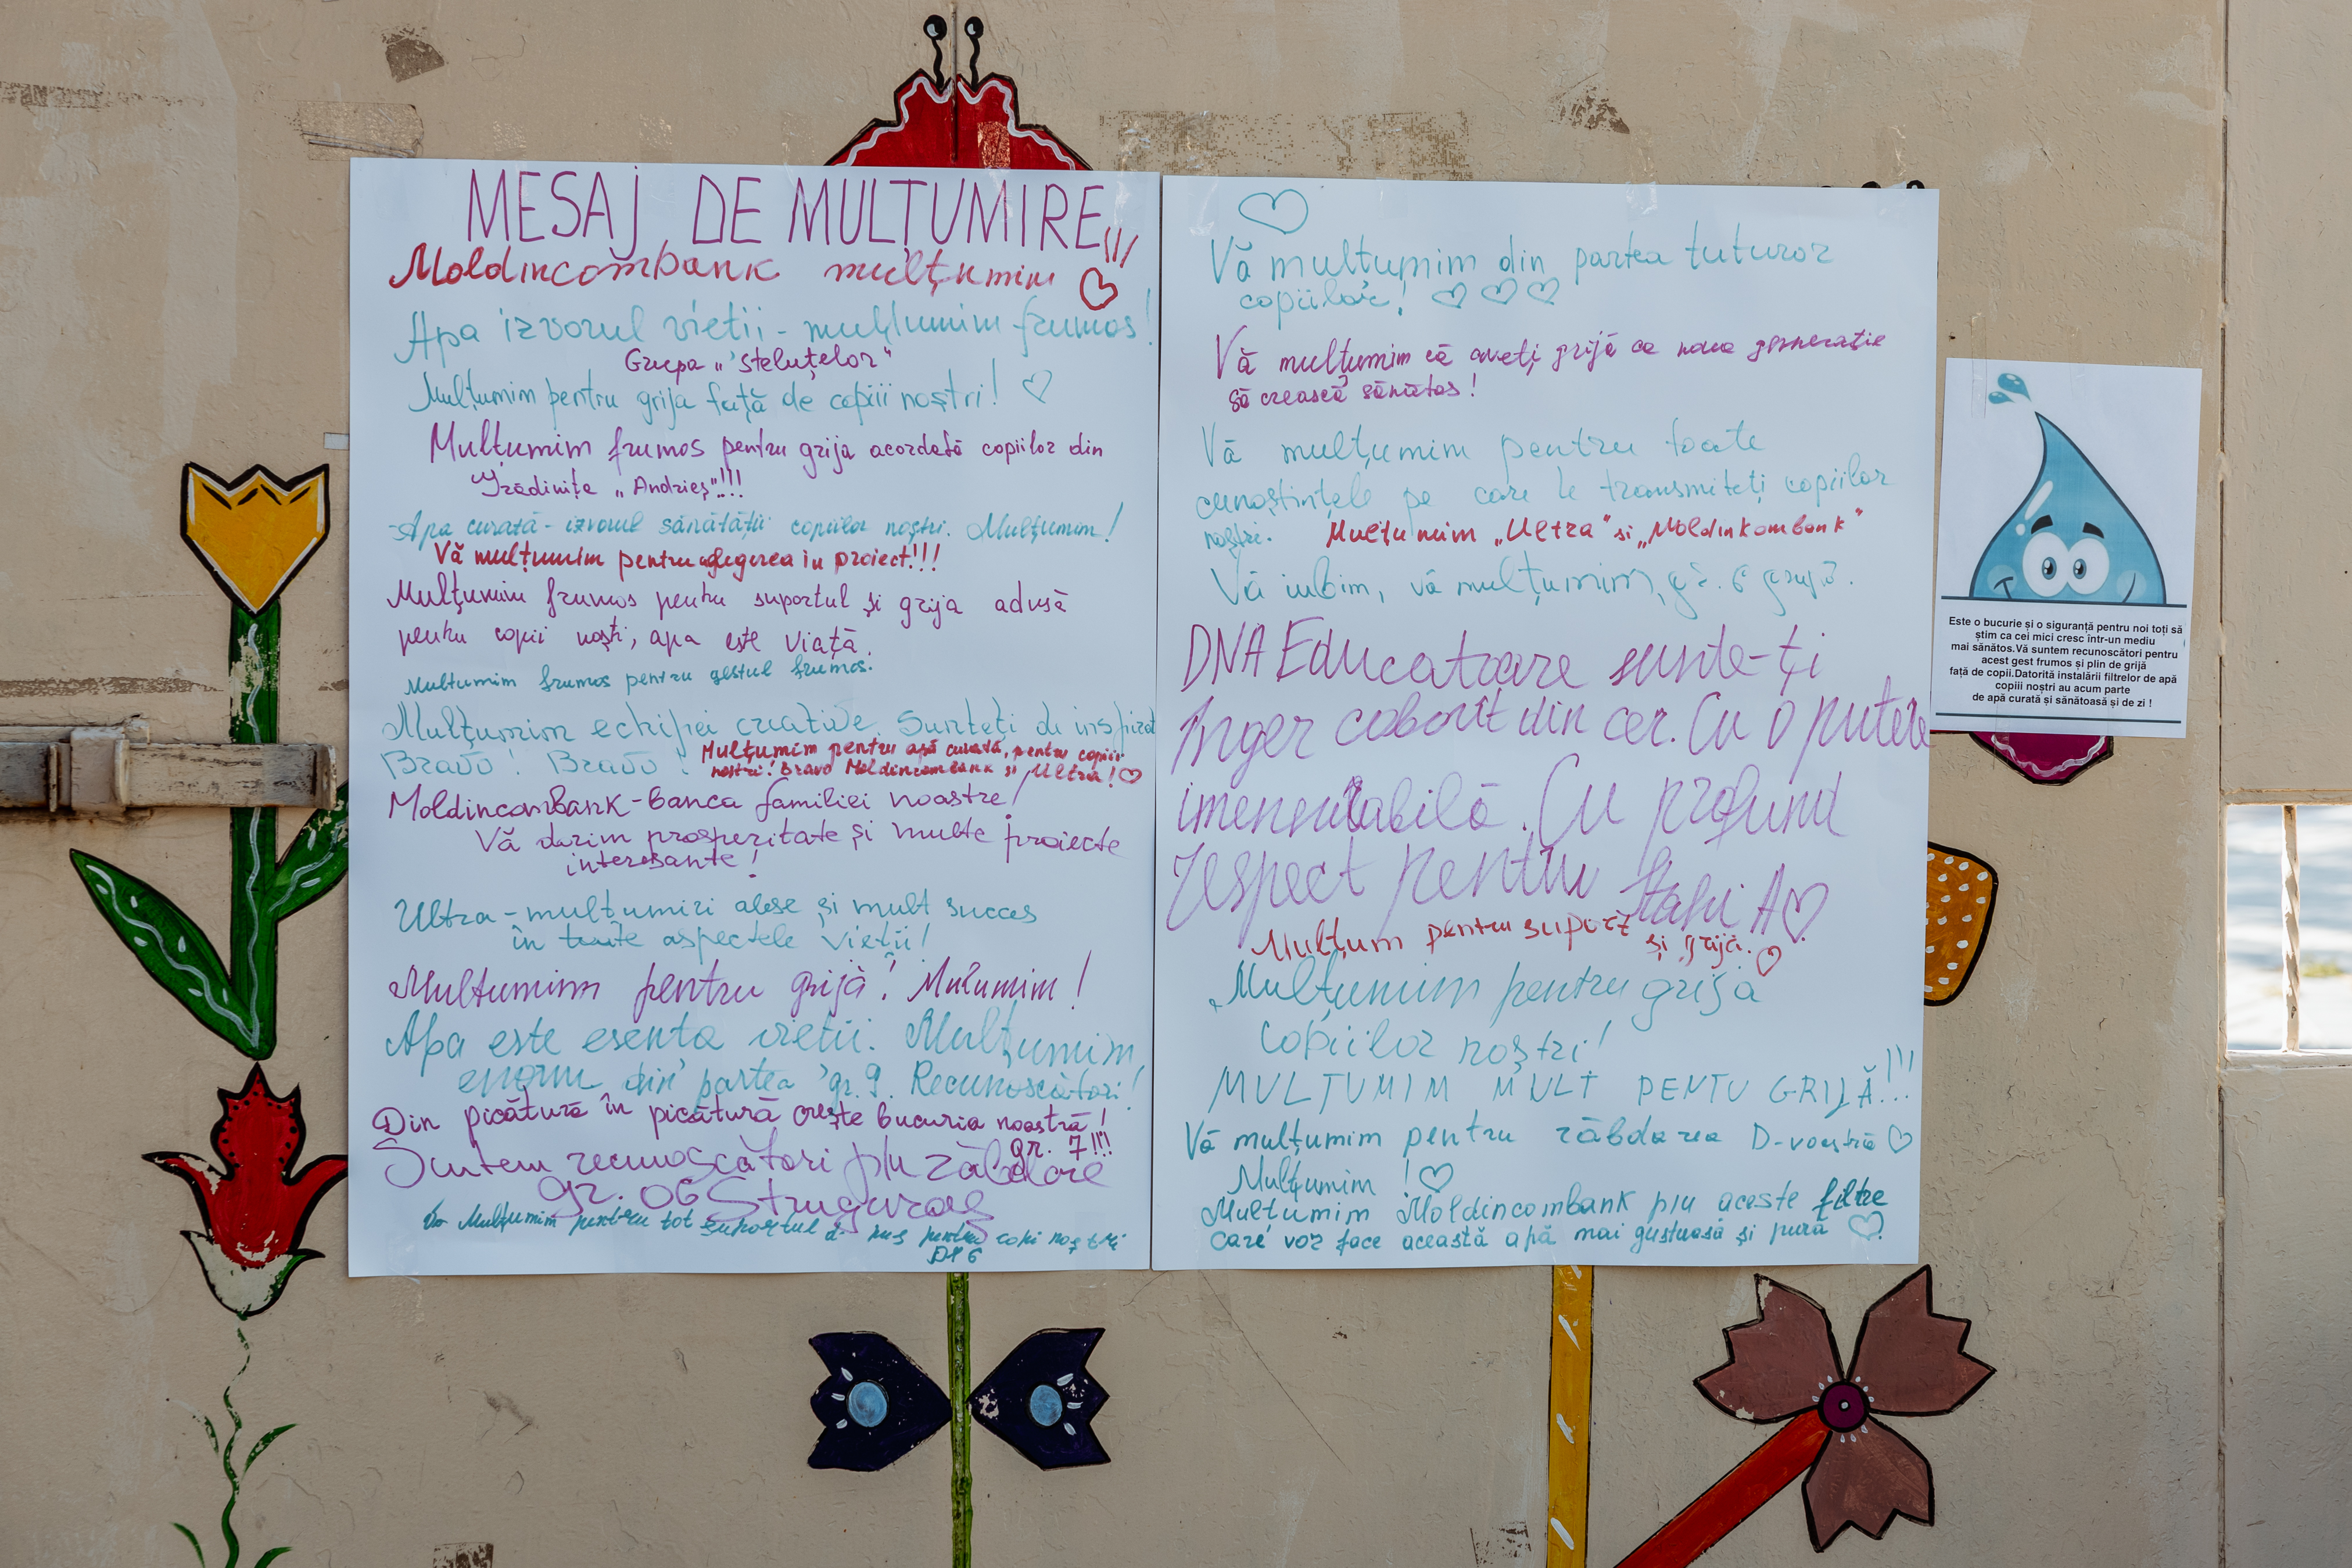 MESAJ DE MULȚUMIRE!!!
Moldincombank mulțumim
Apa izvorul vieții - mulțumim frumos!
Grupa „Steluțelor"
Mulțumim pentru grija față de copiii noștri!
Mulțumim frumos pentru grija acordată copiilor din
Grădinița „Andrieș"!!!
-Apa curată - izvorul sănătății copiilor noștri. Mulțumim!
Vă mulțumim pentru alegerea in proiect!!!
Mulțumim frumos pentru suportul și grija adusă
pentru copii noști, apa este viață.
Multumim frumos pentru gestul frumos.
Mulțumim echipei creative Sunteți de inspirat
Bravo! Bravo!
Mulțumim pentru apă curată, pentru copiii
nostri! Bravo Moldincombank si Ultra!
Moldincombank - Banca familiei noastre!
Vă dorim prosperitate și multe proiecte
interesante!
Ultra - mulțumiri alese și mult succes
în toate aspectele vieții!
Multumim pentru grijă! Mulumim!
Apa este esenta vietii. Mulțumim,
enorm din partea gr. 9. Recunoscători!
Din picătură în picătură crește bucuria noastră!
gr. 7!!!
Suntem recunoscători p/u răbdare
gr. 06 Strugurași
Mulțumim pentru tot suportul pentru copi noștri
Vă multumim din partea tuturor
copiilor!
Vă mulțumim că aveți grijă ca noua generatie
să crească sănătos!
Vă mulțumim pentru toate
cunoștințele pe care le transmiteți copiilor
noștri.
Mulțumim „Ultra" si „Moldinkombank"
Vă iubim, vă mulțumim, 6
DNA Educatoare sunte-ți
Înger coborît din cer. Cu o putere
Cu profund
respect pentru
Mulțum pentru suport
și grija.
Mulțumim pentru grija
copiilor noștri!
MULȚUMIM MULT PENTU GRIJĂ!!!
Vă mulțumim pentru răbdarea D-voastră
Mulțumim!
Multumim Moldincombank p/u aceste filtre
care vor face această apă mai gustuasă și pură
Este o bucurie și o siguranță pentru noi toți să
știm ca cei mici cresc într-un mediu
mai sănătos.Vă suntem recunoscători pentru
acest gest frumos și plin de grijă
față de copii.Datorită instalării filtrelor de apă
copiii noștri au acum parte
de apă curată și sănătoasă și de zi !